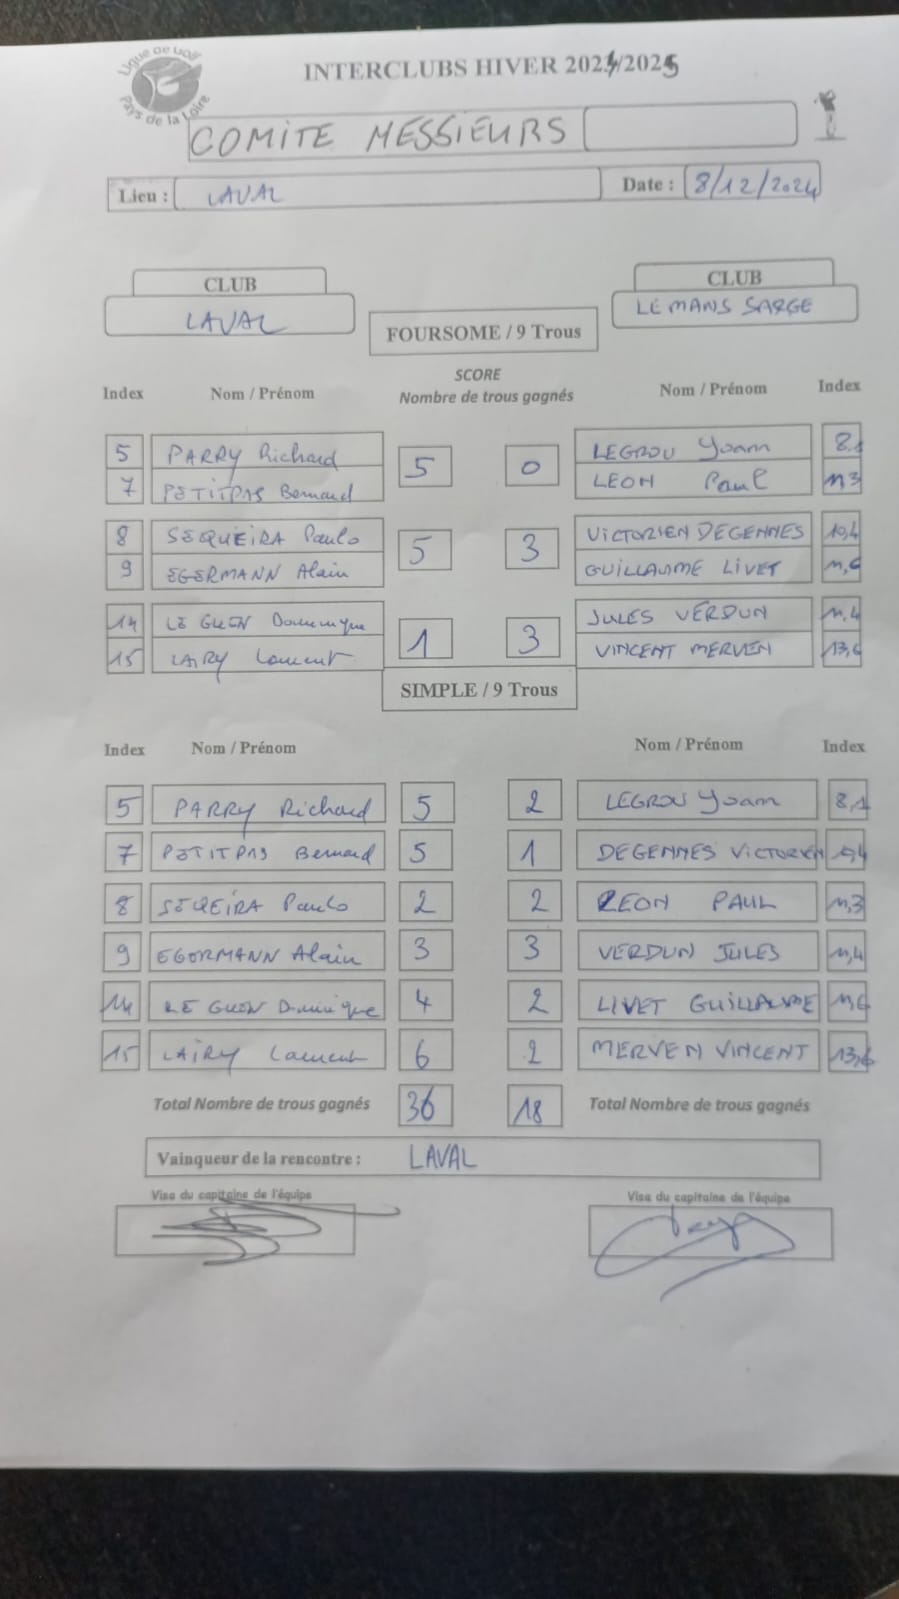 Ligue de Golf
Pays de la Loire
INTERCLUBS HIVER 2024/2025
COMITE MESSIEURS
Lieu : LAVAL Date : 8/12/2024
CLUB CLUB
LAVAL LE MANS SARGE
FOURSOME / 9 Trous
SCORE
Index Nom / Prénom Nombre de trous gagnés Nom / Prénom Index
5 PARRY Richard 5 0 LEGROU Yoann 8,1
7 PETITPAS Bernard LEON Paul 11,3
8 SEQUEIRA Paulo 5 3 VICTORIEN DEGENNES 10,4
9 EGERMANN Alain GUILLAUME LIVET 11,6
14 LE GUEN Dominique 1 3 JULES VERDUN 11,4
15 LAIRY Laurent VINCENT MERVEN 13,6
SIMPLE / 9 Trous
Index Nom / Prénom Nom / Prénom Index
5 PARRY Richard 5 2 LEGROU Yoann 8,1
7 PETITPAS Bernard 5 1 DEGENNES VICTORIEN 10,4
8 SEQEIRA Paulo 2 2 LEON PAUL 11,3
9 EGERMANN Alain 3 3 VERDUN JULES 11,4
14 LE GUEN Dominique 4 2 LIVET GUILLAUME 11,6
15 LAIRY Laurent 6 2 MERVEN VINCENT 13,6
Total Nombre de trous gagnés 36 18 Total Nombre de trous gagnés
Vainqueur de la rencontre : LAVAL
Visa du capitaine de l'équipe Visa du capitaine de l'équipe